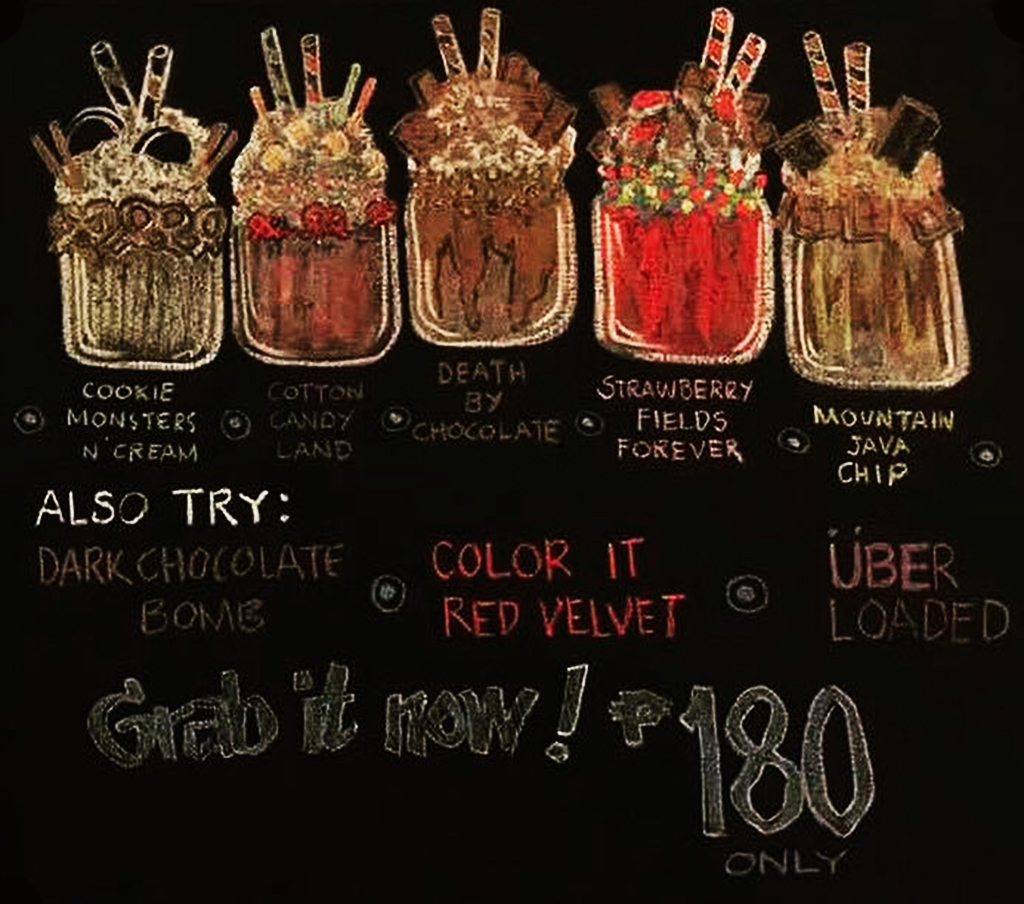 COOKIE
MONSTERS
N' CREAM
COTTON
CANDY
LAND
DEATH
BY
CHOCOLATE
STRAWBERRY
FIELDS
FOREVER
MOUNTAIN
JAVA
CHIP
ALSO TRY:
DARK CHOCOLATE
BOMB
COLOR IT
RED VELVET
ÜBER
LOADED
Grab it now! ₱180
ONLY